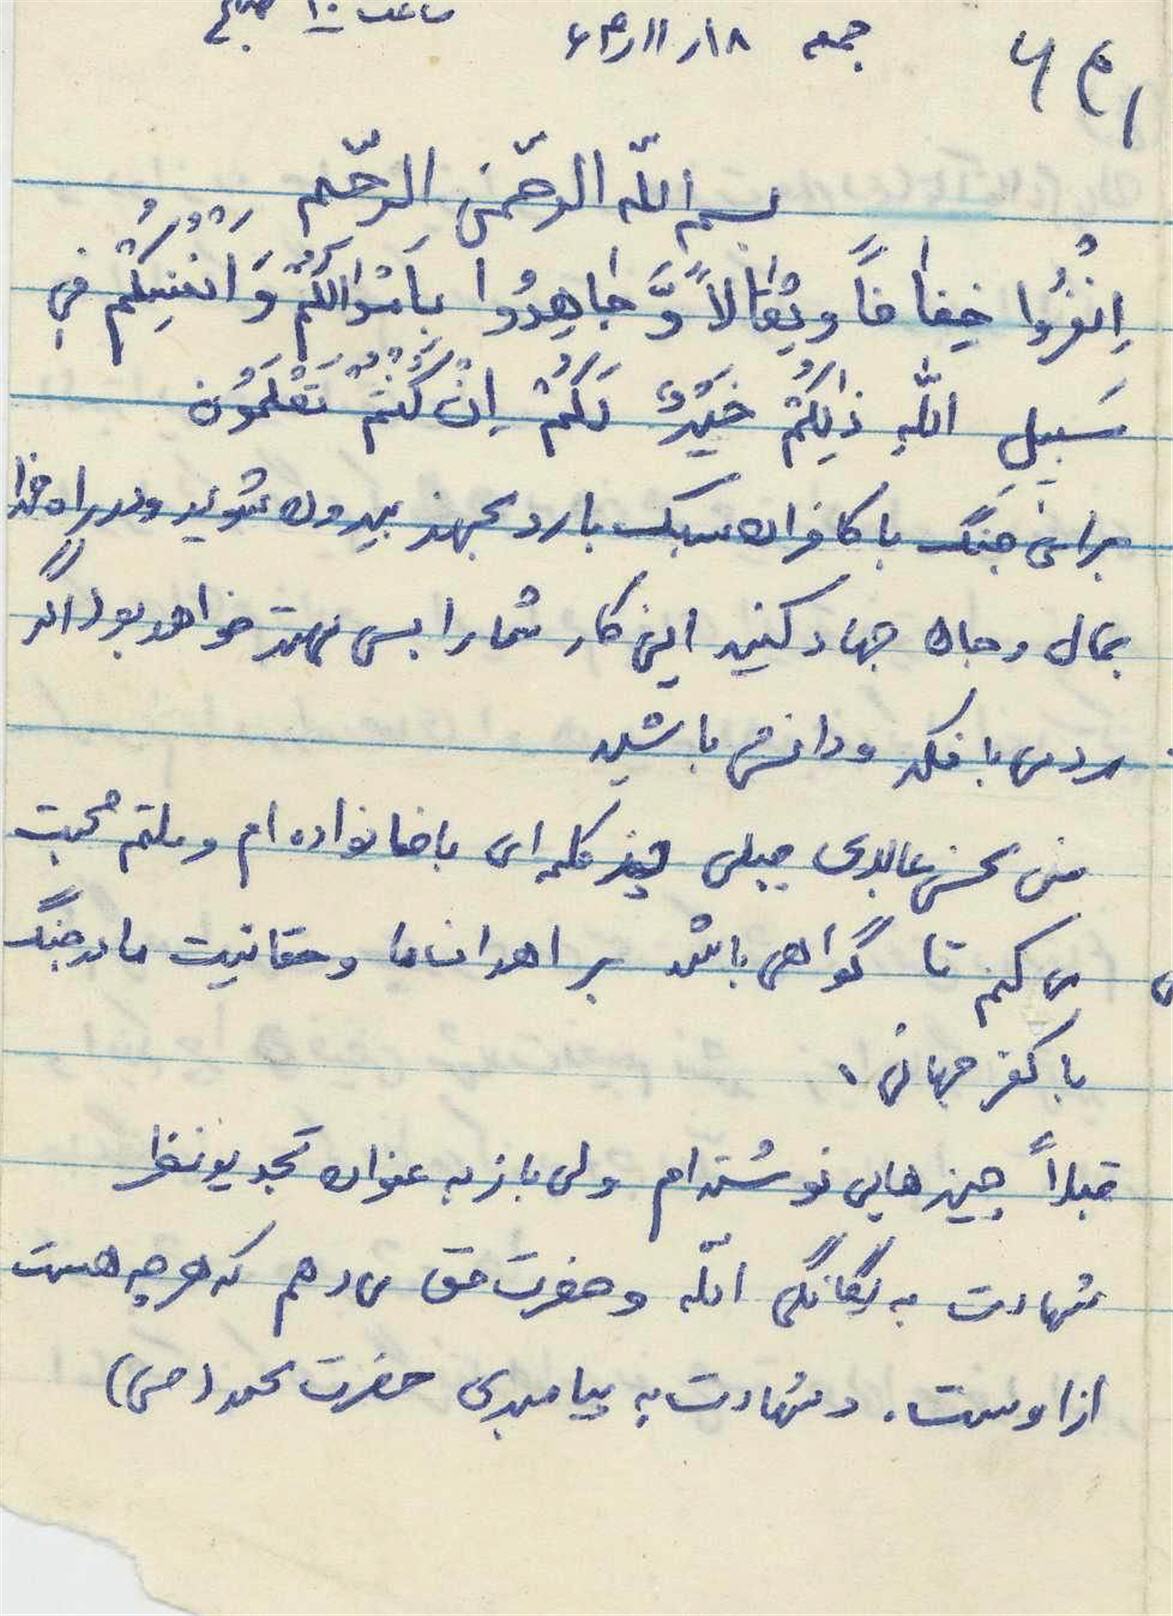 ساعت ۱۰ صبح
جمعه ۱۸ر۱۱ر۶۴
بسم اللّه الرحّمن الرحّیم
اِنْفُرُوا خِفافاً و ثِقالاً وَّ جاهِدُوا بِاَمْوالِکُمْ وَ اَنْفُسِکُمْ فی
سَبیلِ اللّهِ ذالِکُمْ خَیْرٌ لَکُمْ اِنْ کُنْتُمْ تَعْلَمُون
برای جنگ با کافران سبک بار و مجهز بیرون شوید و در راه خدا
بمال و جان جهاد کنید این کار شما را بسی بهتر خواهد بود اگر
مردمی با فکر و دانش باشید
من محسن عابدی جبلی چند کلمه ای با خانواده ام و ملتم صحبت
می کنم تا گواهی باشد بر اهداف ما و حقانیت ما در جنگ
با کفر جهانی.
قبلاً چیزهایی نوشته‌ام ولی باز به عنوان تجدیدنظر
شهادت به یگانگی اللّه و حضرت حق می دهم که هرچه هست
از اوست. و شهادت به پیامبری حضرت محمد (ص)